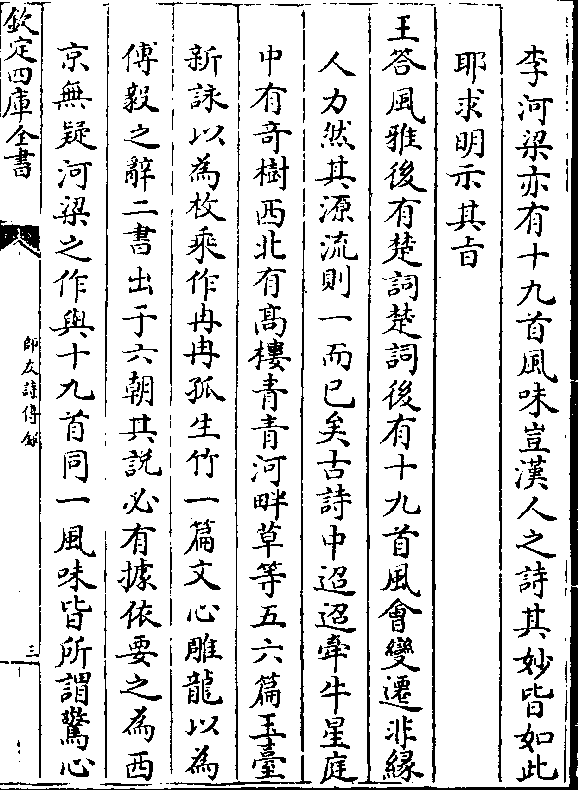 李河梁亦有十九首風味豈漢人之詩其妙皆如此
耶求明示其㫖
王答風雅後有楚詞楚詞後有十九首風會變遷非緣
人力然其源流則一而已矣古詩中迢迢牽牛星庭
中有竒樹西北有髙樓青青河畔草等五六篇玉臺
新詠以為枚乘作冉冉孤生竹一篇文心雕龍以為
傅毅之辭二書出于六朝其説必有據依要之為西
京無疑河梁之作與十九首同一風味皆所謂驚心
欽定四庫全書
師友詩傳録
三